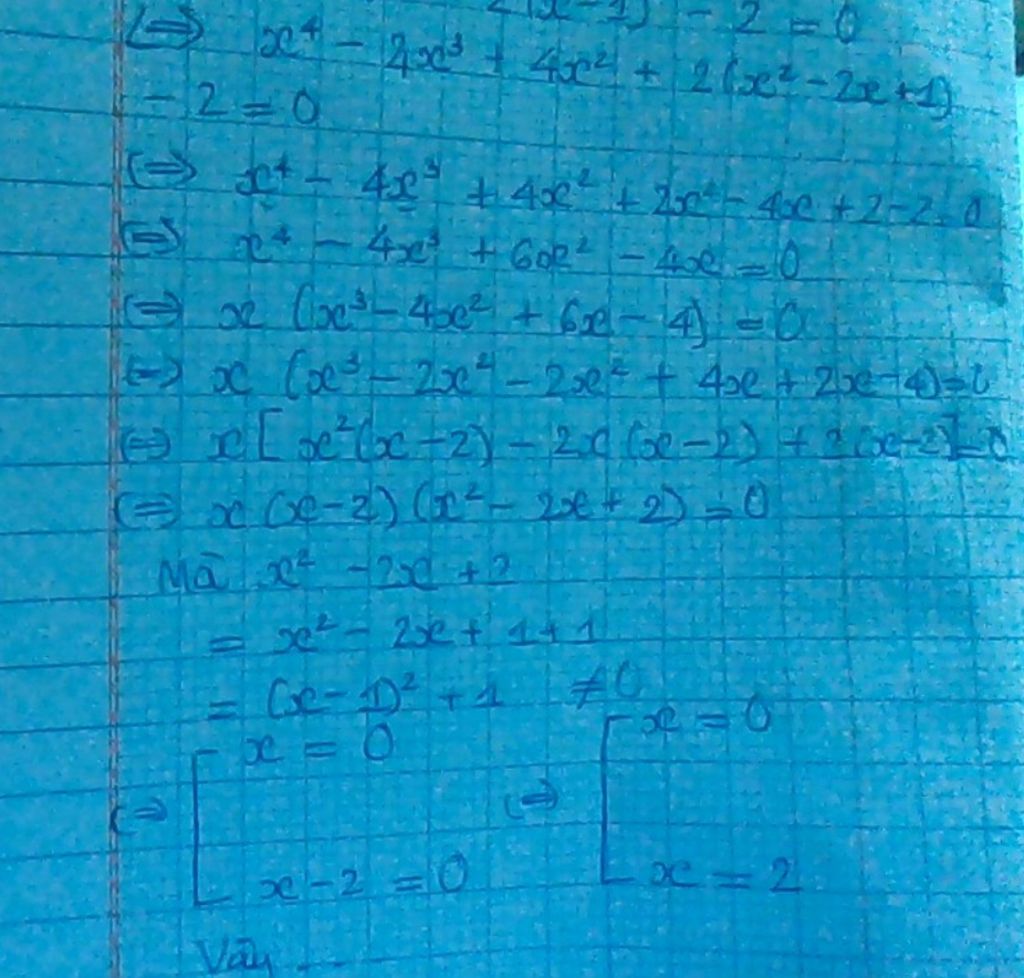 2(x-1) - 2 = 0
(⇒) x⁴ - 2x³ + 4x² + 2(x² - 2x + 1)
- 2 = 0
(⇒) x⁴ - 4x³ + 4x² + 2x² - 4x + 2 - 2 = 0
(⇒) x⁴ - 4x³ + 6x² - 4x = 0
(⇒) x (x³ - 4x² + 6x - 4) = 0
(⇒) x (x³ - 2x² - 2x² + 4x + 2x - 4) = 0
(⇒) x [x²(x-2) - 2x(x-2) + 2(x-2] = 0
(⇒) x (x-2) (x² - 2x + 2) = 0
Mà x² - 2x + 2
= x² - 2x + 1 + 1
= (x-1)² + 1 ≠ 0
(⇒) [ x = 0 (⇒) [ x = 0
x - 2 = 0 x = 2
Vậy ...